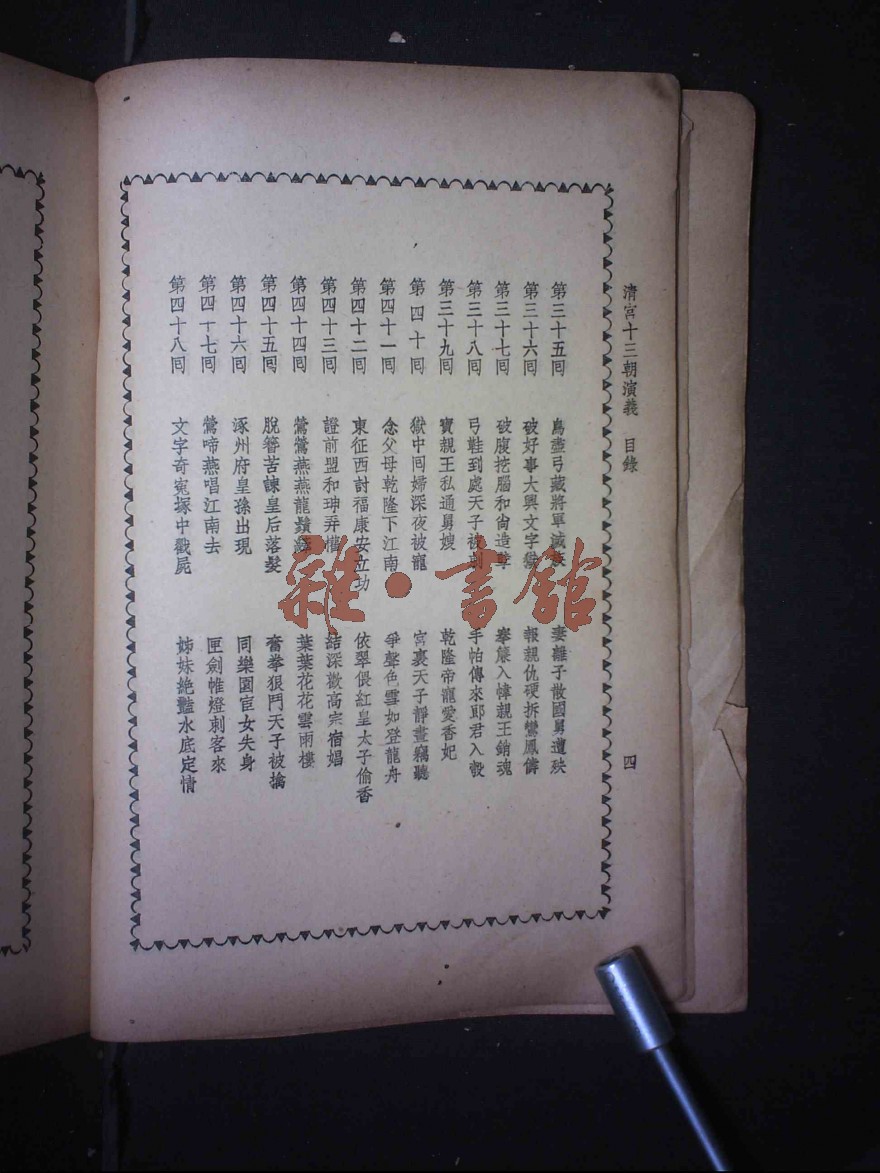 清宮十三朝演義 目錄 四
第三十五囘 鳥盡弓藏將軍滅族 妻離子散國舅遭殃
第三十六囘 破好事大興文字獄 報親仇硬拆鸞鳳儔
第三十七囘 破腹挖腦和尚造孽 褰簾入幃親王銷魂
第三十八囘 弓鞋到處天子被刺 手帕傳來郎君入彀
第三十九囘 寶親王私通舅嫂 乾隆帝寵愛香妃
第四十囘 獄中囘婦深夜被寵 宮裏天子靜晝竊聽
第四十一囘 念父母乾隆下江南 爭聲色雪如登龍舟
第四十二囘 東征西討福康安立功 依翠偎紅皇太子偷香
第四十三囘 證前盟和珅弄權 結深歡高宗宿娼
第四十四囘 鶯鶯燕燕龍鬚 葉葉花花雲雨樓
第四十五囘 脫簪苦諫皇后落髮 奮拳狠鬥天子被擒
第四十六囘 涿州府皇孫出現 同樂園宦女失身
第四十七囘 鶯啼燕唱江南去 匣劍帷燈刺客來
第四十八囘 文字奇冤塚中戳屍 姊妹絕豔水底定情
雜·書館